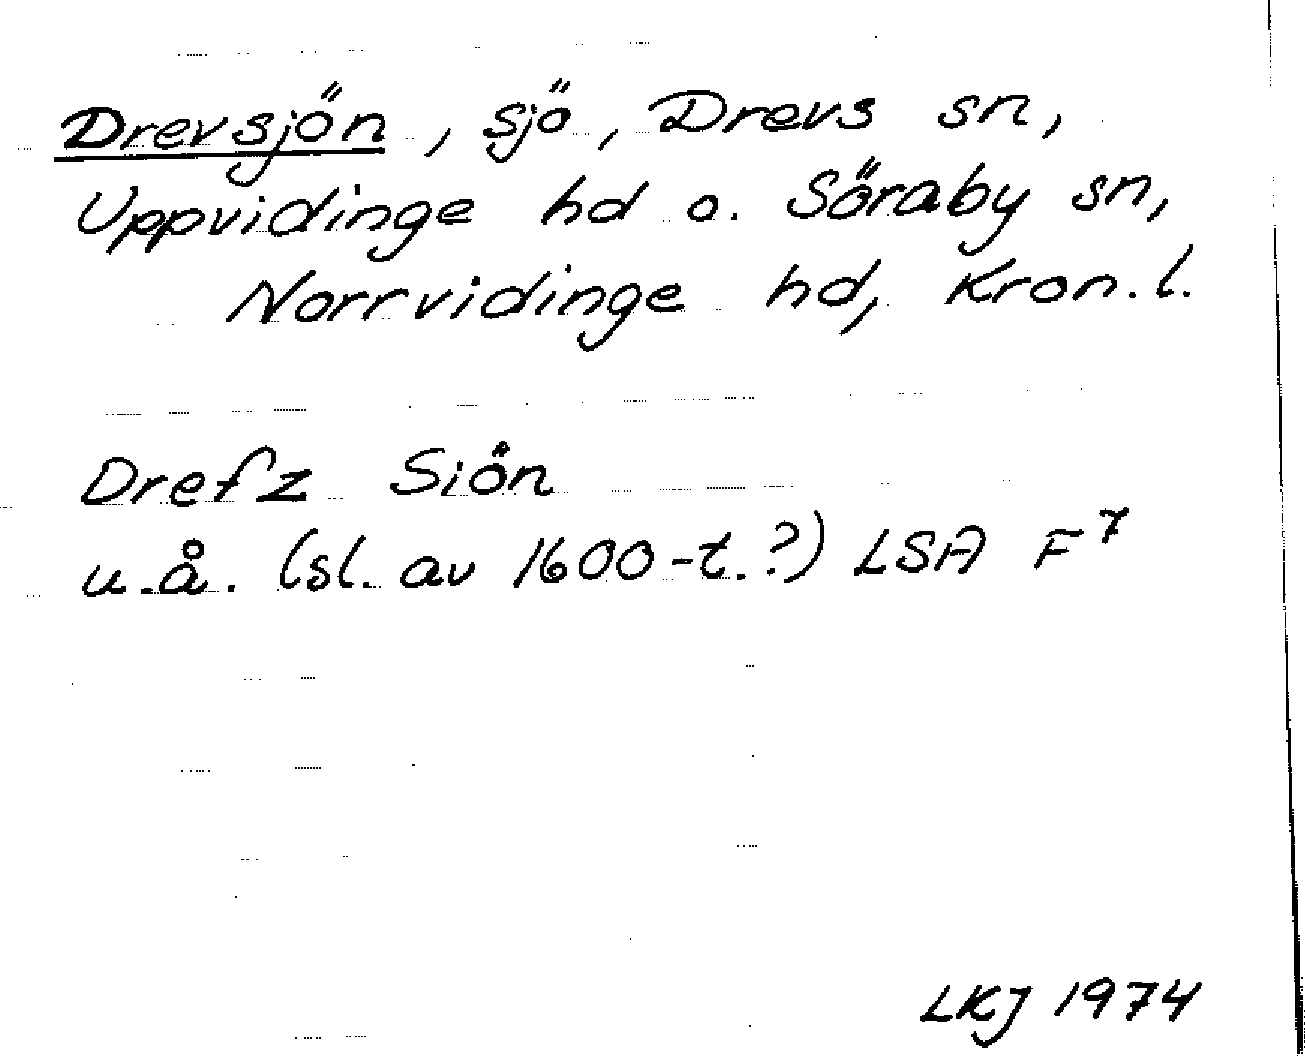 Drevsjön, sjö, Drevs sn,
Uppvidinge hd o. Söraby sn,
Norrvidinge hd, Kron. l.
Drefz Siön
u.å. (sl. av 1600-t.?) LSA F⁷
LKJ 1974